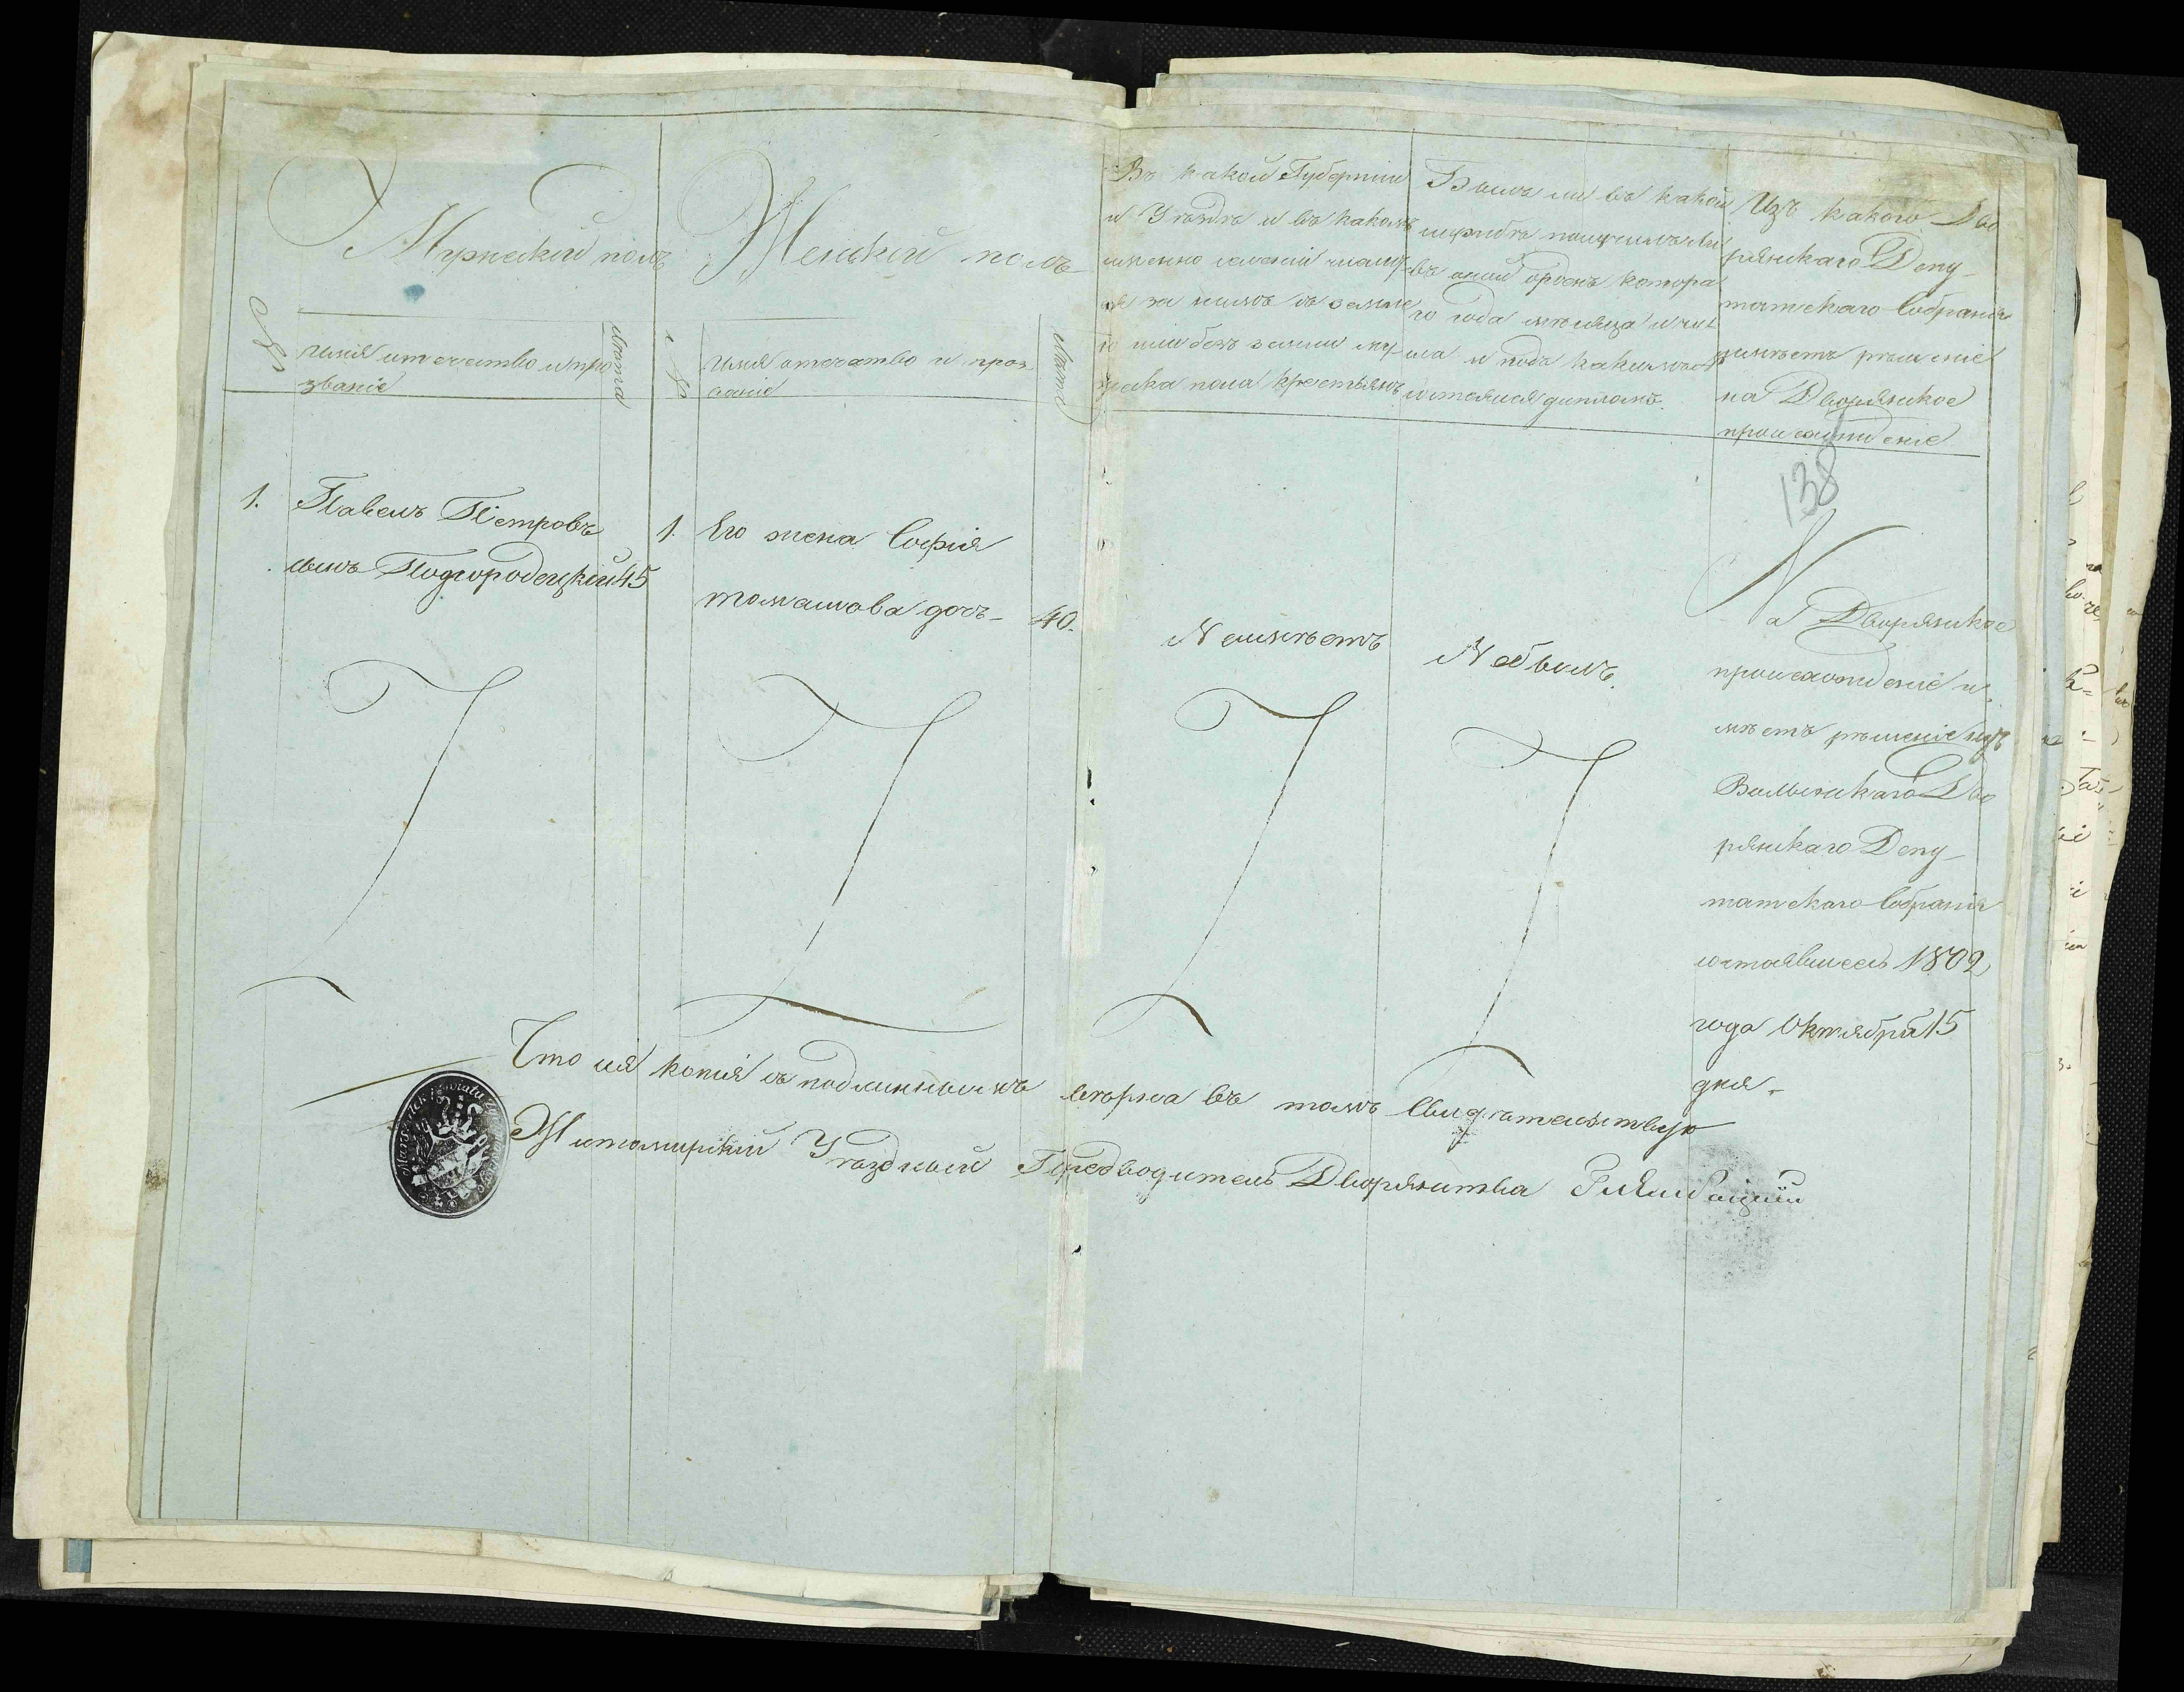 Мужескій полъ
№
имя отечество и про
званіе
лѣта
Женскій полъ
№
имя отечество и проз
ваніе
лѣта
Въ какой Губерніи
и Уѣздѣ и въ какомъ
именно селеніи
за нимъ съ земле
ю или безъ земли му
жеска пола крестьянъ
Былъ ли въ какой
службѣ получилъ ли
въ оной орденъ котора
го года мѣсяца и чис
ла и подъ какимъ
состоялся дипломъ.
Изъ какого Дво
рянскаго Депу
татскаго Собранія
имѣетъ рѣшеніе
на Дворянское
происхожденіе
138
1. Павелъ Петровъ
сынъ Подгородецкій 45
1. Его жена Софія
томашова дочь - 40.
Не имѣетъ
Не былъ.
На Дворянское
происхожденіе и
мѣетъ рѣшеніе изъ
Волынскаго Дво
рянскаго Депу
татскаго Собранія
состоявшеесь 1802
года Октября 15
дня.
Что сія копія съ подлиннымъ вѣрна въ томъ Свидѣтельствую
Житомирскій Уѣздный Предводитель Дворянства